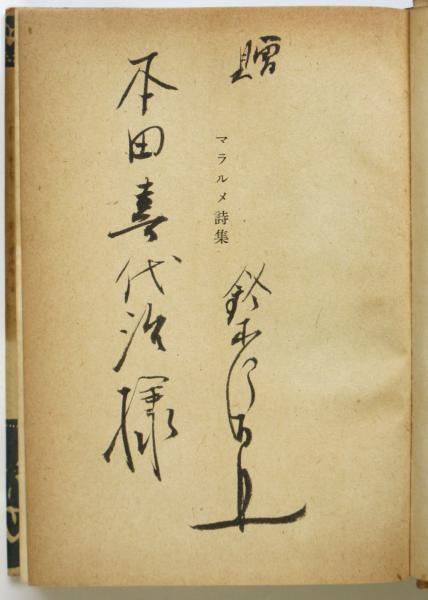 贈
マラルメ詩集
鈴木
本田喜代治様